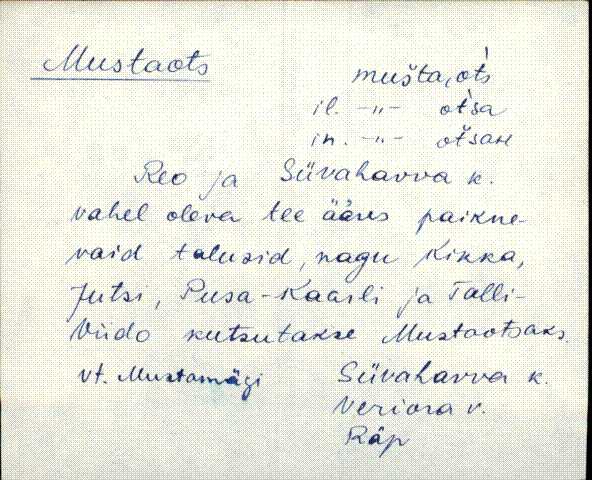 Mustaots
mušta, ot́s
il. -„- ot́sa
in. -„- otšan
Reo ja Süvahavva k.
vahel oleva tee ääres paikne-
vaid talusid, nagu Kikka,
Jutsi, Pusa-Kaarli ja Talli-
Viido kutsutakse Mustaotsaks.
vt. Mustamägi
Süvahavva k.
Veriora v.
Räp